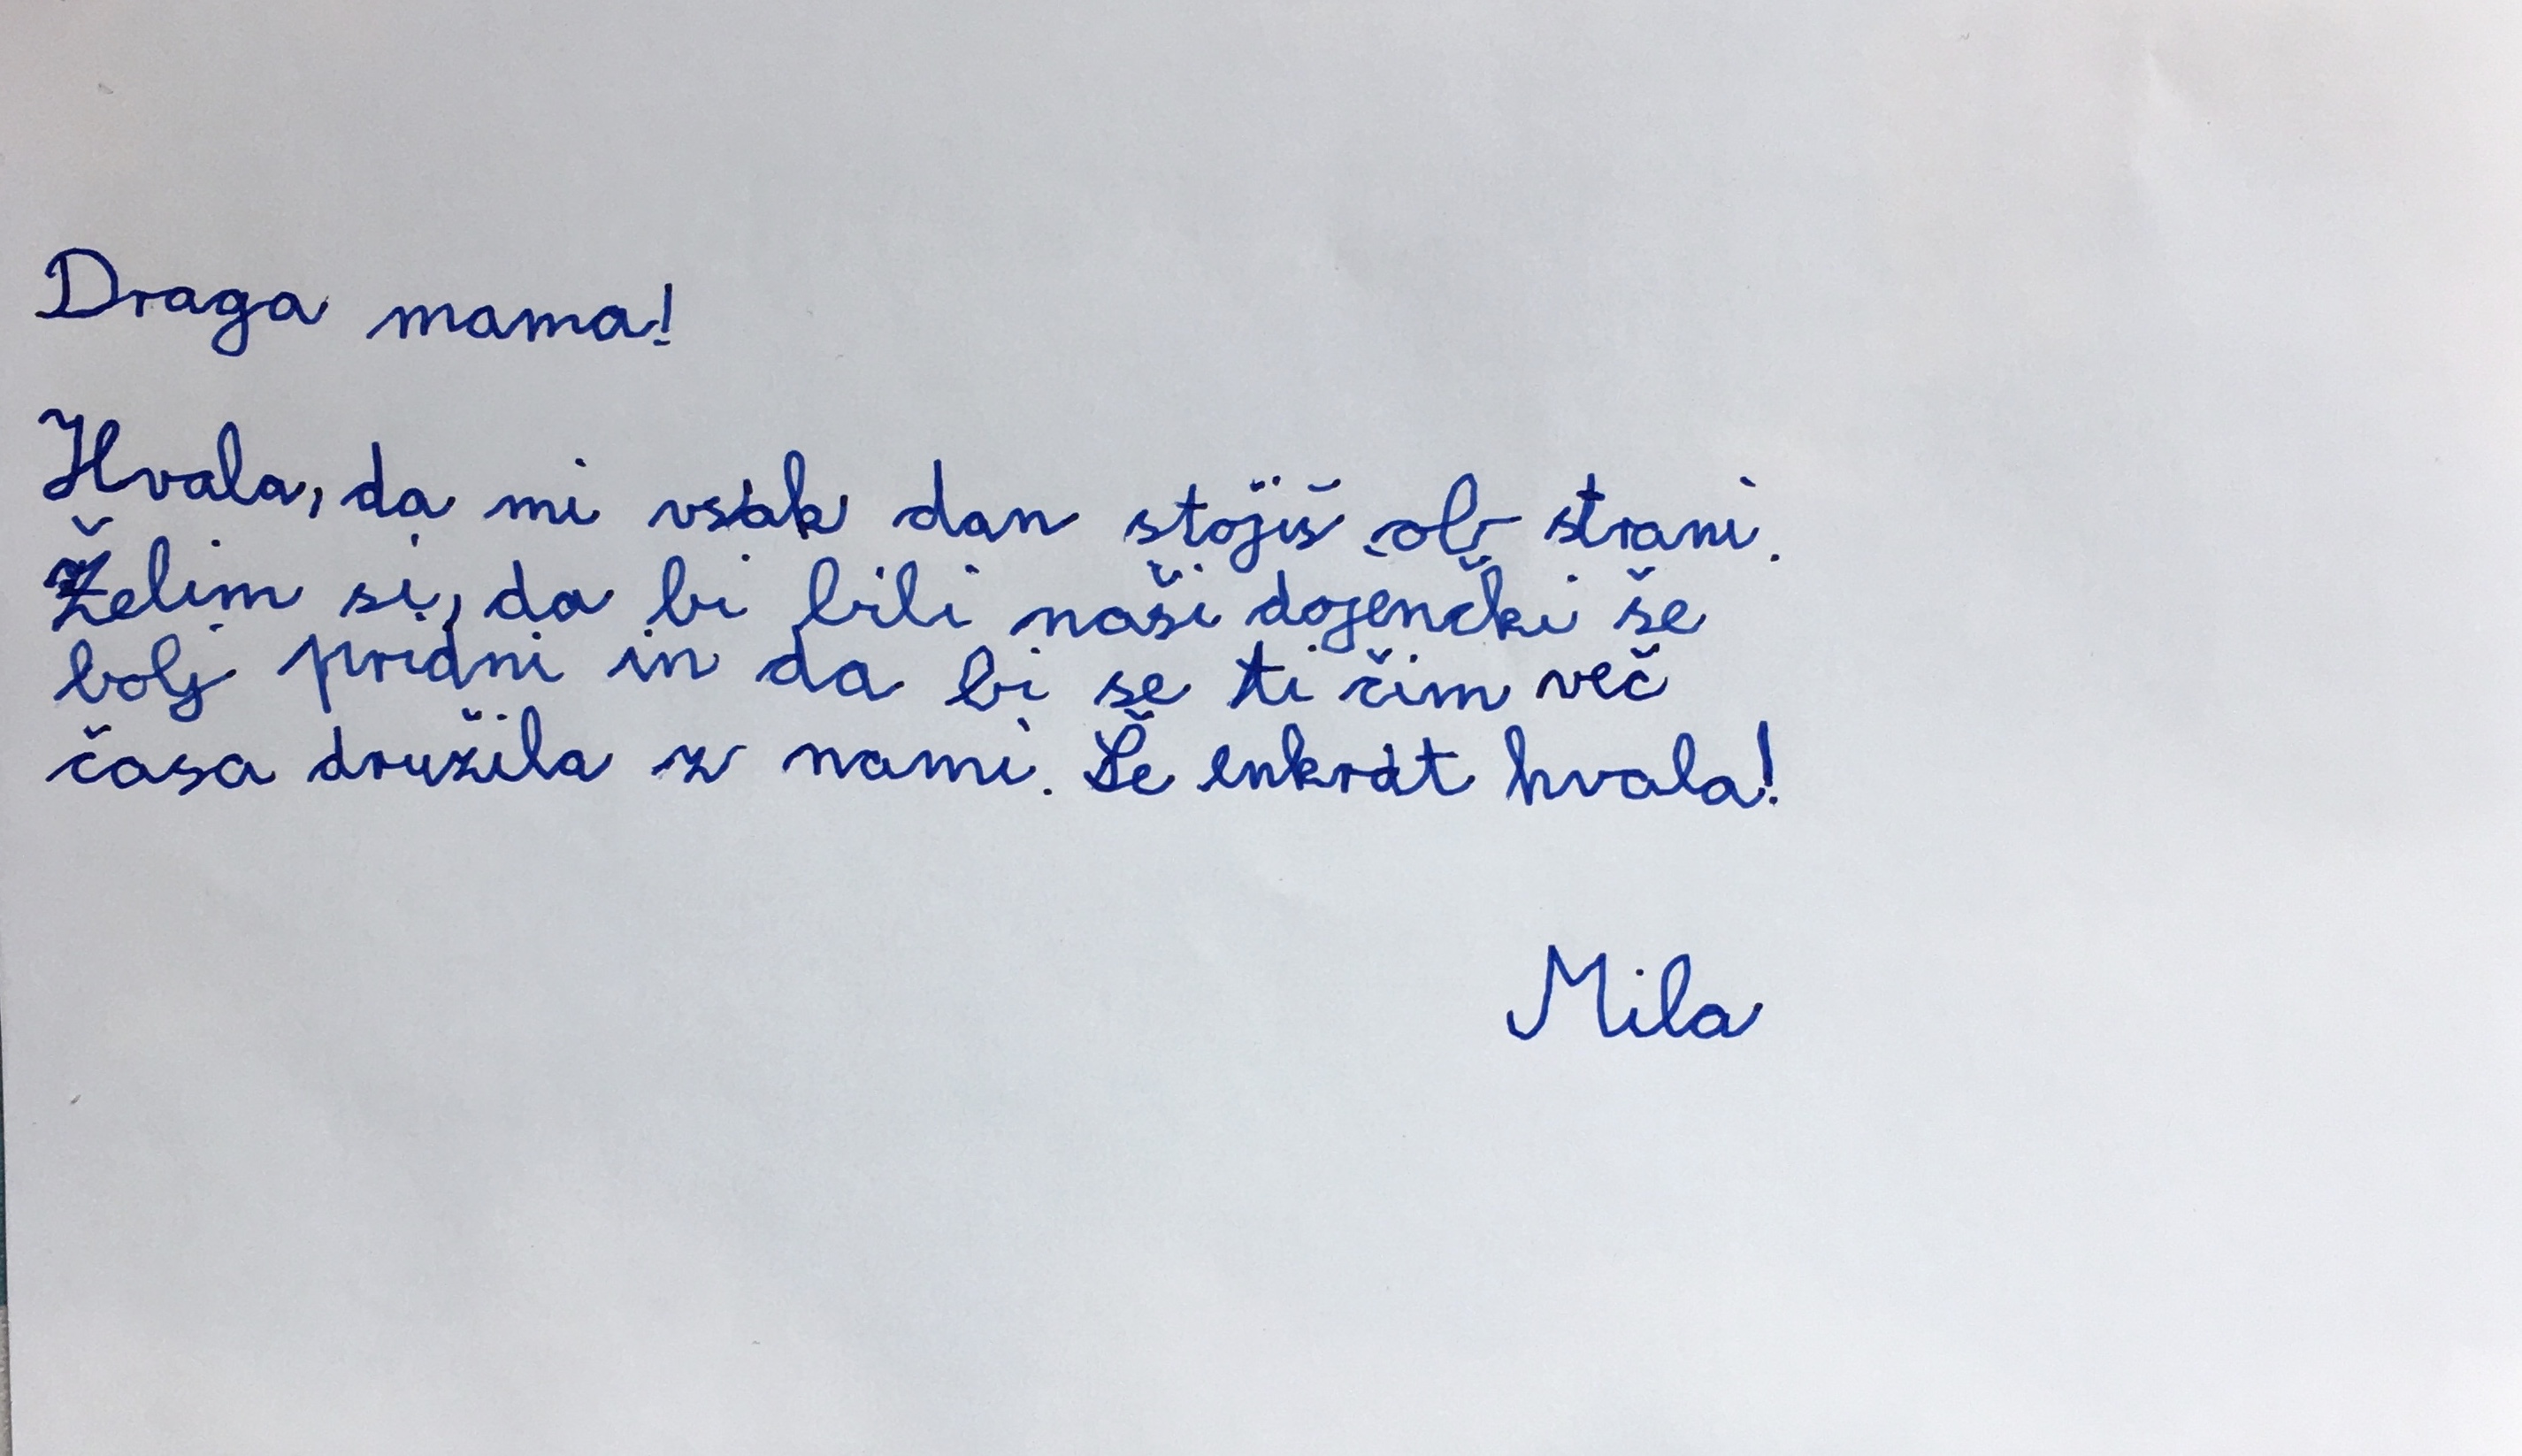 Draga mama!
Hvala, da mi vsak dan stojiš ob strani.
Želim si, da bi bili naši dojenčki še
bolj pridni in da bi se ti čim več
časa družila z nami. Še enkrat hvala!
Mila